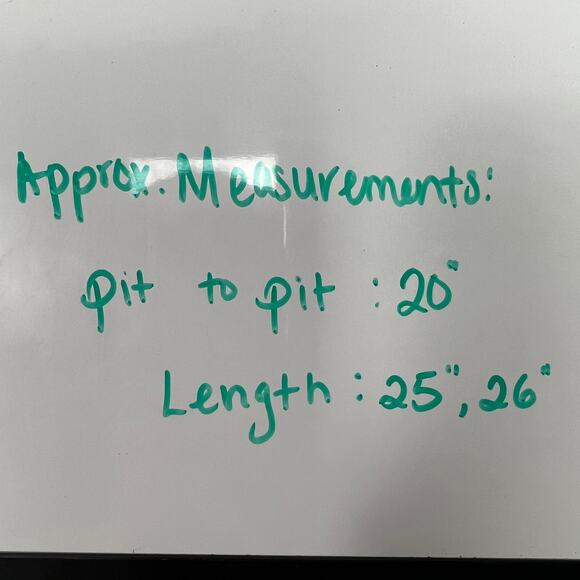 Approx. Measurements:
pit to pit : 20"
Length : 25", 26"